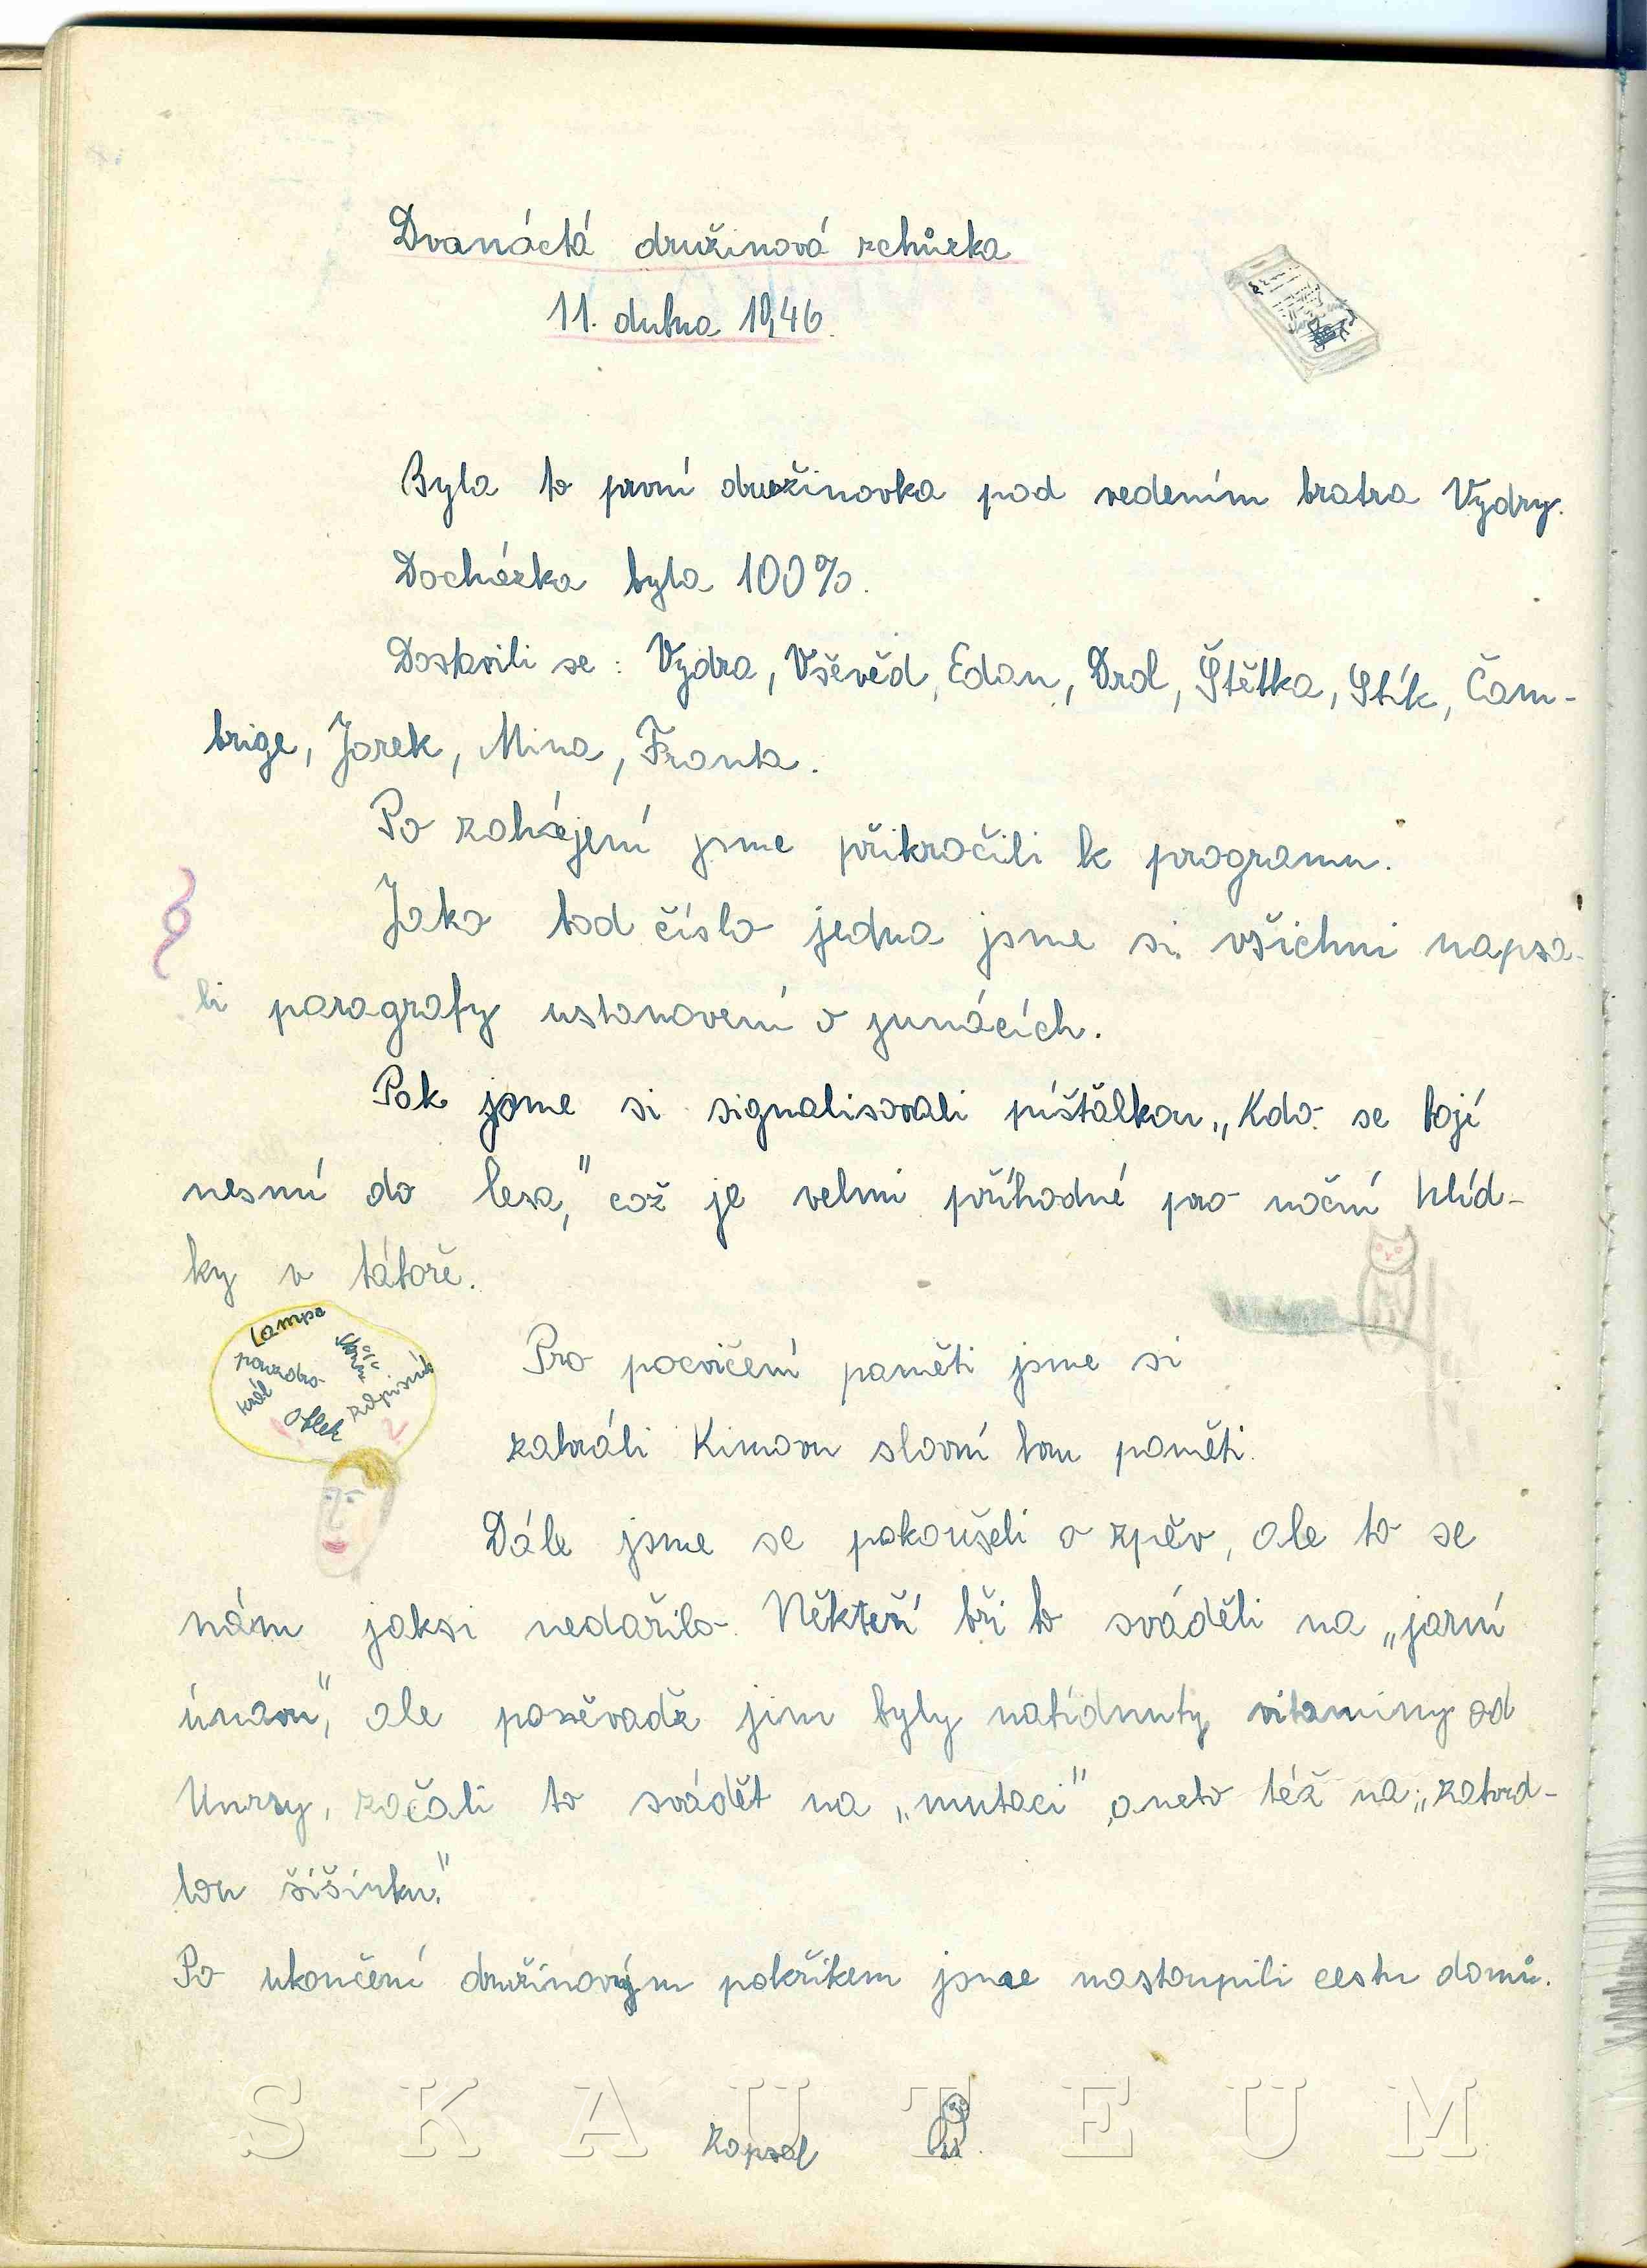 Dvanáctá družinová schůzka
11. dubna 1946.
Byla to první družinovka pod vedením bratra Vydry.
Docházka byla 100%.
Dostavili se: Vydra, Vševěd, Edan, Drol, Štětka, Stík, Čam-
brige, Jarek, Mina, Franta.
Po zahájení jsme přikročili k programu.
§
Jako bod číslo jedna jsme si všichni napsa-
li paragrafy ustanovení o junácích.
Pak jsme si signalisovali píšťalkou „Kdo se bojí
nesmí do lesa," což je velmi příhodné pro noční hlíd-
ky v táboře.
Lampa
pouzdro
král
Oblek
zápisník
Pro pocvičení paměti jsme si
zahráli Kimovu slovní hru paměti.
Dále jsme se pokoušeli o zpěv, ale to se
nám jaksi nedařilo. Někteří tři to sváděli na „jarní
únavu," ale poněvadž jim byly nabídnuty vitaminy od
Unrry, začali to svádět na „mutaci", anebo též na „zatvrd-
lou šišinku."
Po ukončení družinovým pokřikem jsme nastoupili cestu domů.
Zapsal
SKAUTEUM